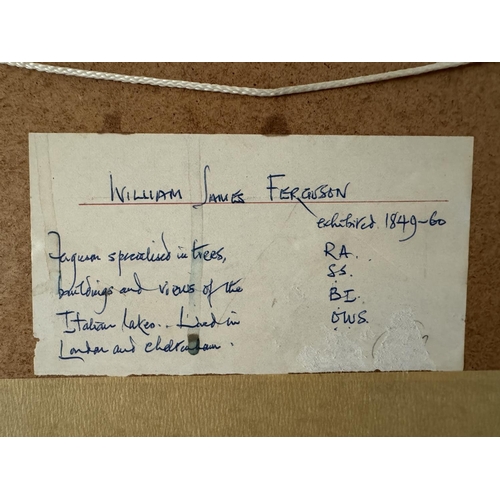 WILLIAM JAMES FERGUSON
exhibited 1849-60
Ferguson specialised in trees,
buildings and views of the
Italian Lakes.. Lived in
London and Cheltenham.
RA..
SS.
BI.
OWS.